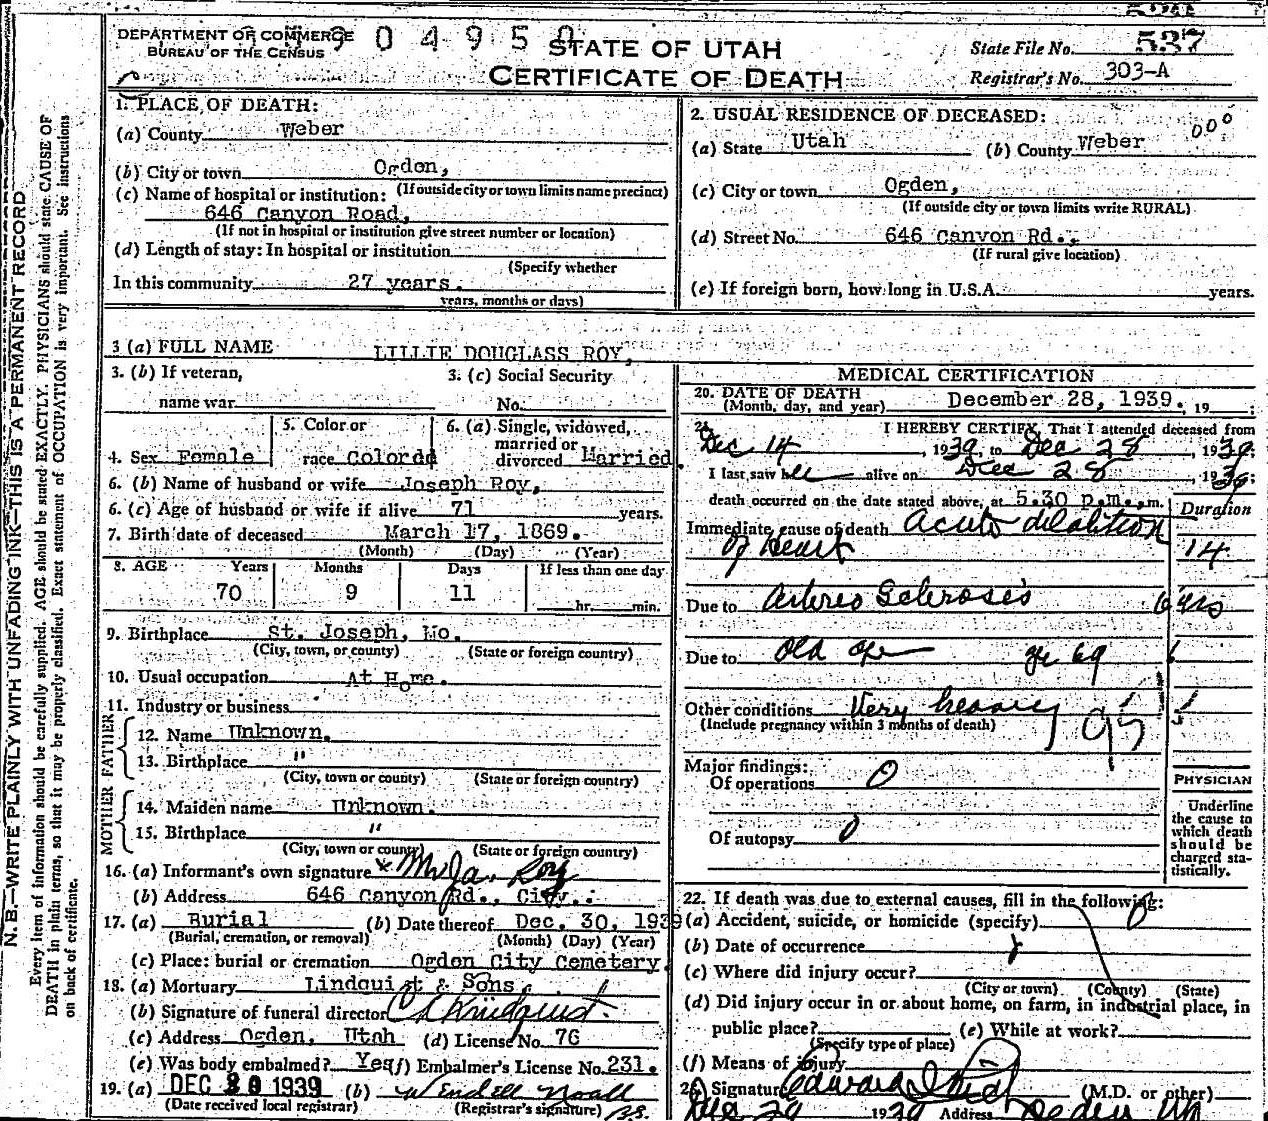 DEPARTMENT OF COMMERCE
BUREAU OF THE CENSUS
3904950
STATE OF UTAH
CERTIFICATE OF DEATH
State File No. 537
Registrar's No. 303-A
N. B.—WRITE PLAINLY WITH UNFADING INK—THIS IS A PERMANENT RECORD
Every item of information should be carefully supplied. AGE should be stated EXACTLY. PHYSICIANS should state CAUSE OF
DEATH in plain terms, so that it may be properly classified. Exact statement of OCCUPATION is very important. See instructions
on back of certificate.
1. PLACE OF DEATH:
(a) County Weber
(b) City or town Ogden,
(If outside city or town limits name precinct)
(c) Name of hospital or institution:
646 Canyon Road,
(If not in hospital or institution give street number or location)
(d) Length of stay: In hospital or institution
(Specify whether
In this community 27 years.
years, months or days)
2. USUAL RESIDENCE OF DECEASED:
000
(a) State Utah (b) County Weber
(c) City or town Ogden,
(If outside city or town limits write RURAL)
(d) Street No. 646 Canyon Rd.,
(If rural give location)
(e) If foreign born, how long in U.S.A. years.
3 (a) FULL NAME LILLIE DOUGLASS ROY,
3. (b) If veteran,
name war
3. (c) Social Security
No.
4. Sex Female
5. Color or
race Colored
6. (a) Single, widowed,
married or
divorced Married.
6. (b) Name of husband or wife Joseph Roy,
6. (c) Age of husband or wife if alive 71 years.
7. Birth date of deceased March 17, 1869.
(Month) (Day) (Year)
8. AGE Years Months Days If less than one day
70 9 11 hr. min.
9. Birthplace St. Joseph, Mo.
(City, town, or county) (State or foreign country)
10. Usual occupation At Home.
11. Industry or business
FATHER
12. Name Unknown.
13. Birthplace "
(City, town or county) (State or foreign country)
MOTHER
14. Maiden name Unknown.
15. Birthplace "
(City, town or county) (State or foreign country)
16. (a) Informant's own signature x Roy
(b) Address 646 Canyon Rd., City.
17. (a) Burial (b) Date thereof Dec. 30, 1939
(Burial, cremation, or removal) (Month) (Day) (Year)
(c) Place: burial or cremation Ogden City Cemetery.
18. (a) Mortuary Lindquist & Sons,
(b) Signature of funeral director
(c) Address Ogden, Utah (d) License No. 76
(e) Was body embalmed? Yes (f) Embalmer's License No. 231.
19. (a) DEC 30 1939 (b) Wendell Noall
(Date received local registrar) (Registrar's signature)
MEDICAL CERTIFICATION
20. DATE OF DEATH
(Month, day, and year) December 28, 1939. , 19 ;
21. I HEREBY CERTIFY, That I attended deceased from
Dec 14 , 1939, to Dec 28 , 1939;
I last saw her alive on Dec 28 , 1939;
death occurred on the date stated above, at 5.30 p.m. m.
Duration
Immediate cause of death Acute dilatation
of Heart 14
Due to Arterio Sclerosis 6 yrs
Due to Old age 69
Other conditions Very heavy
(Include pregnancy within 3 months of death)
95
Major findings:
Of operations 0
Of autopsy 0
PHYSICIAN
Underline
the cause to
which death
should be
charged sta-
tistically.
22. If death was due to external causes, fill in the following:
(a) Accident, suicide, or homicide (specify) 0
(b) Date of occurrence
(c) Where did injury occur?
(City or town) (County) (State)
(d) Did injury occur in or about home, on farm, in industrial place, in
public place? (e) While at work?
(Specify type of place)
(f) Means of injury
Signature Edward (M.D. or other)
Dec 29 1939 Address Ogden